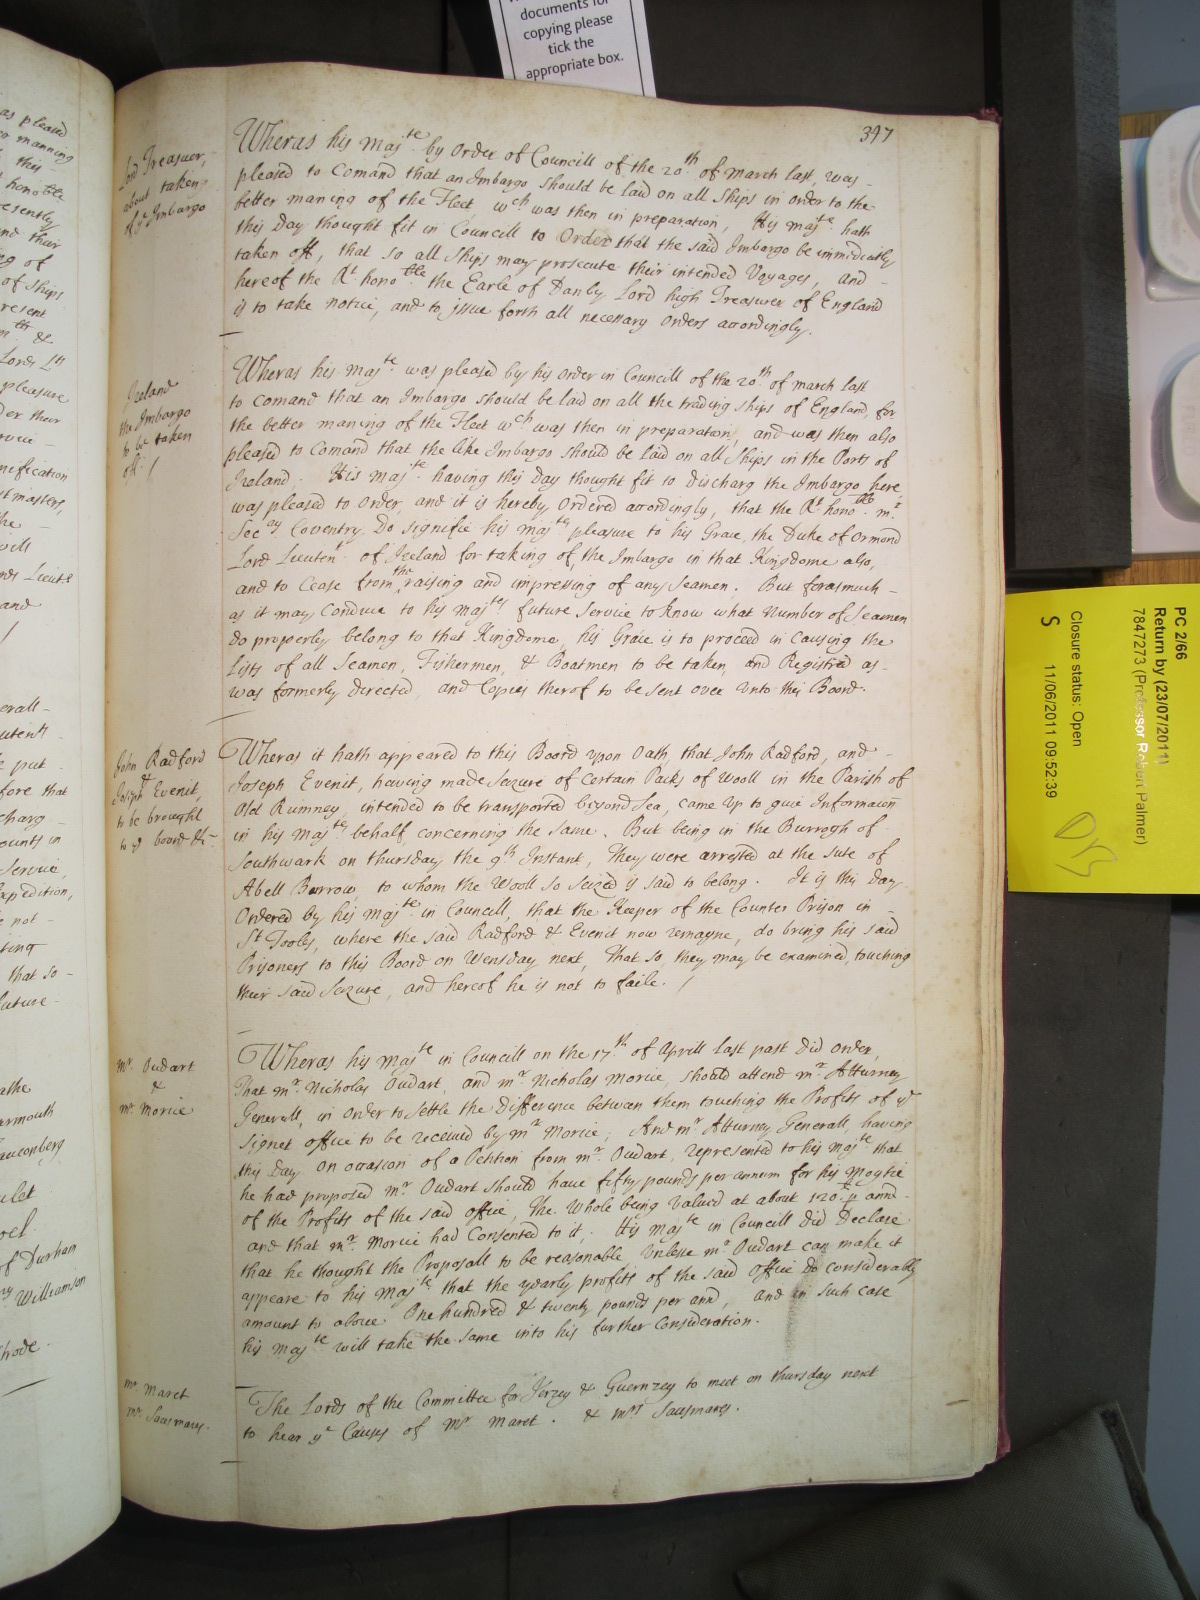 documents for
copying please
tick the
appropriate box.
397
Lord Treasurer,
about taken
of ye Imbargo
Wheras his Majte by Order of Councill of the 20th of March last, was -
pleased to Comand that an Imbargo should be laid on all Ships in order to the
better maning of the Fleet wch was then in preparation, His Majte hath
this Day thought fit in Councill to Order that the said Imbargo be immediatly
taken off, that so all Ships may prosecute their intended Voyages, and -
hereof the Rt honoble the Earle of Danby Lord high Treasurer of England
is to take notice, and to issue forth all necessary Orders accordingly.
Ireland
the Imbargo
to be taken
off. /
Wheras his Majte was pleased by his Order in Councill of the 20th of March last
to Comand that an Imbargo should be laid on all the trading ships of England, for
the better maning of the Fleet wch was then in preparation, and was then also
pleased to Comand that the like Imbargo should be laid on all Ships in the Ports of
Ireland. His Majte having this Day thought fit to discharg the Imbargo here
was pleased to Order, and it is hereby Ordered accordingly, that the Rt honoble mr
Secay Coventry Do signifie his Majtes pleasure to his Grace, the Duke of Ormond
Lord Lieutent of Ireland for taking of the Imbargo in that Kingdome also,
and to Cease from the raising and impressing of any Seamen. But forasmuch -
as it may Conduce to his Majtes future Service to know what Number of Seamen
do properly belong to that Kingdome, his Grace is to proceed in Causing the
Lists of all Seamen, Fishermen, & Boatmen to be taken, and Registred as -
was formerly directed, and Copies therof to be sent over unto this Board.
John Radford
& Joseph Evenit,
to be brought
to ye board &c
Wheras it hath appeared to this Board upon Oath, that John Radford, and -
Joseph Evenit, having made Seizure of Certain Packs of Wooll in the Parish of
Old Rumney, intended to be transported beyond Sea, came up to give Informacon
in his Majtes behalf concerning the same. But being in the Burrogh of
Southwark on thursday the 9th Instant, They were arrested at the sute of
Abell Burrow to whom the Wooll so seized is said to belong. It is this day
Ordered by his Majte in Councill, that the Keeper of the Counter Prison in -
St Tooles, where the said Radford & Evenit now remayne, do bring his said
Prisoners to this Board on Wensday next, That so, they may be examined, touching
their said Seazure, and hereof he is not to faile. /
Mr. Oudart
&
mr. Morice
Wheras his Majte in Councill on the 17th of Aprill last past did order,
That mr. Nicholas Oudart, and mr. Nicholas Morice, should attend mr. Atturney
Generall, in order to settle the Difference between them touching the Profits of ye
Signet office to be received by mr Morice; And mr. Atturney Generall, having
this Day on occasion of a Petition from mr. Oudart, represented to his Majte that
he had proposed mr. Oudart should have fifty pounds per annum for his Moytie
of the Profits of the said office, The whole being valued at about 120.li p ann.
and that mr. Morice had Consented to it; His Majte in Councill did Declare
that he thought the Proposall to be reasonable Unlesse mr. Oudart can make it
appeare to his Majte that the yearly profits of the said office do considerably
amount to above One hundred & twenty pounds per ann, and in such case
his Majte will take the same into his further Consideration.
mr Maret
mr. Sausmares.
The Lords of the Committee for Jerzey & Guernzey to meet on thursday next
to hear ye Causes of Mr. Maret. & Mrs Sausmares.
PC 2/66
Return by (23/07/2011)
7847273 (Professor Robert Palmer)
Closure status: Open
S 11/06/2011 09:52:39